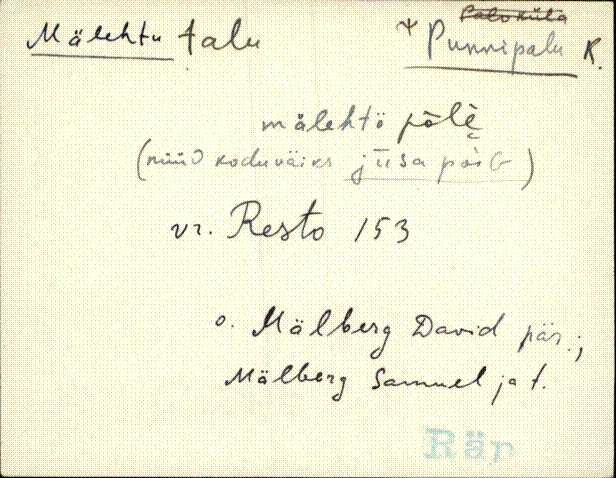 Paloküla
Mälehtu talu Punnipalu K.
mälehtö põlè
(nüüd koduväiks jüsa põit)
vr. Resto 153
o. Mälberg David pär.;
Mälberg Samuel ja t.
Räp